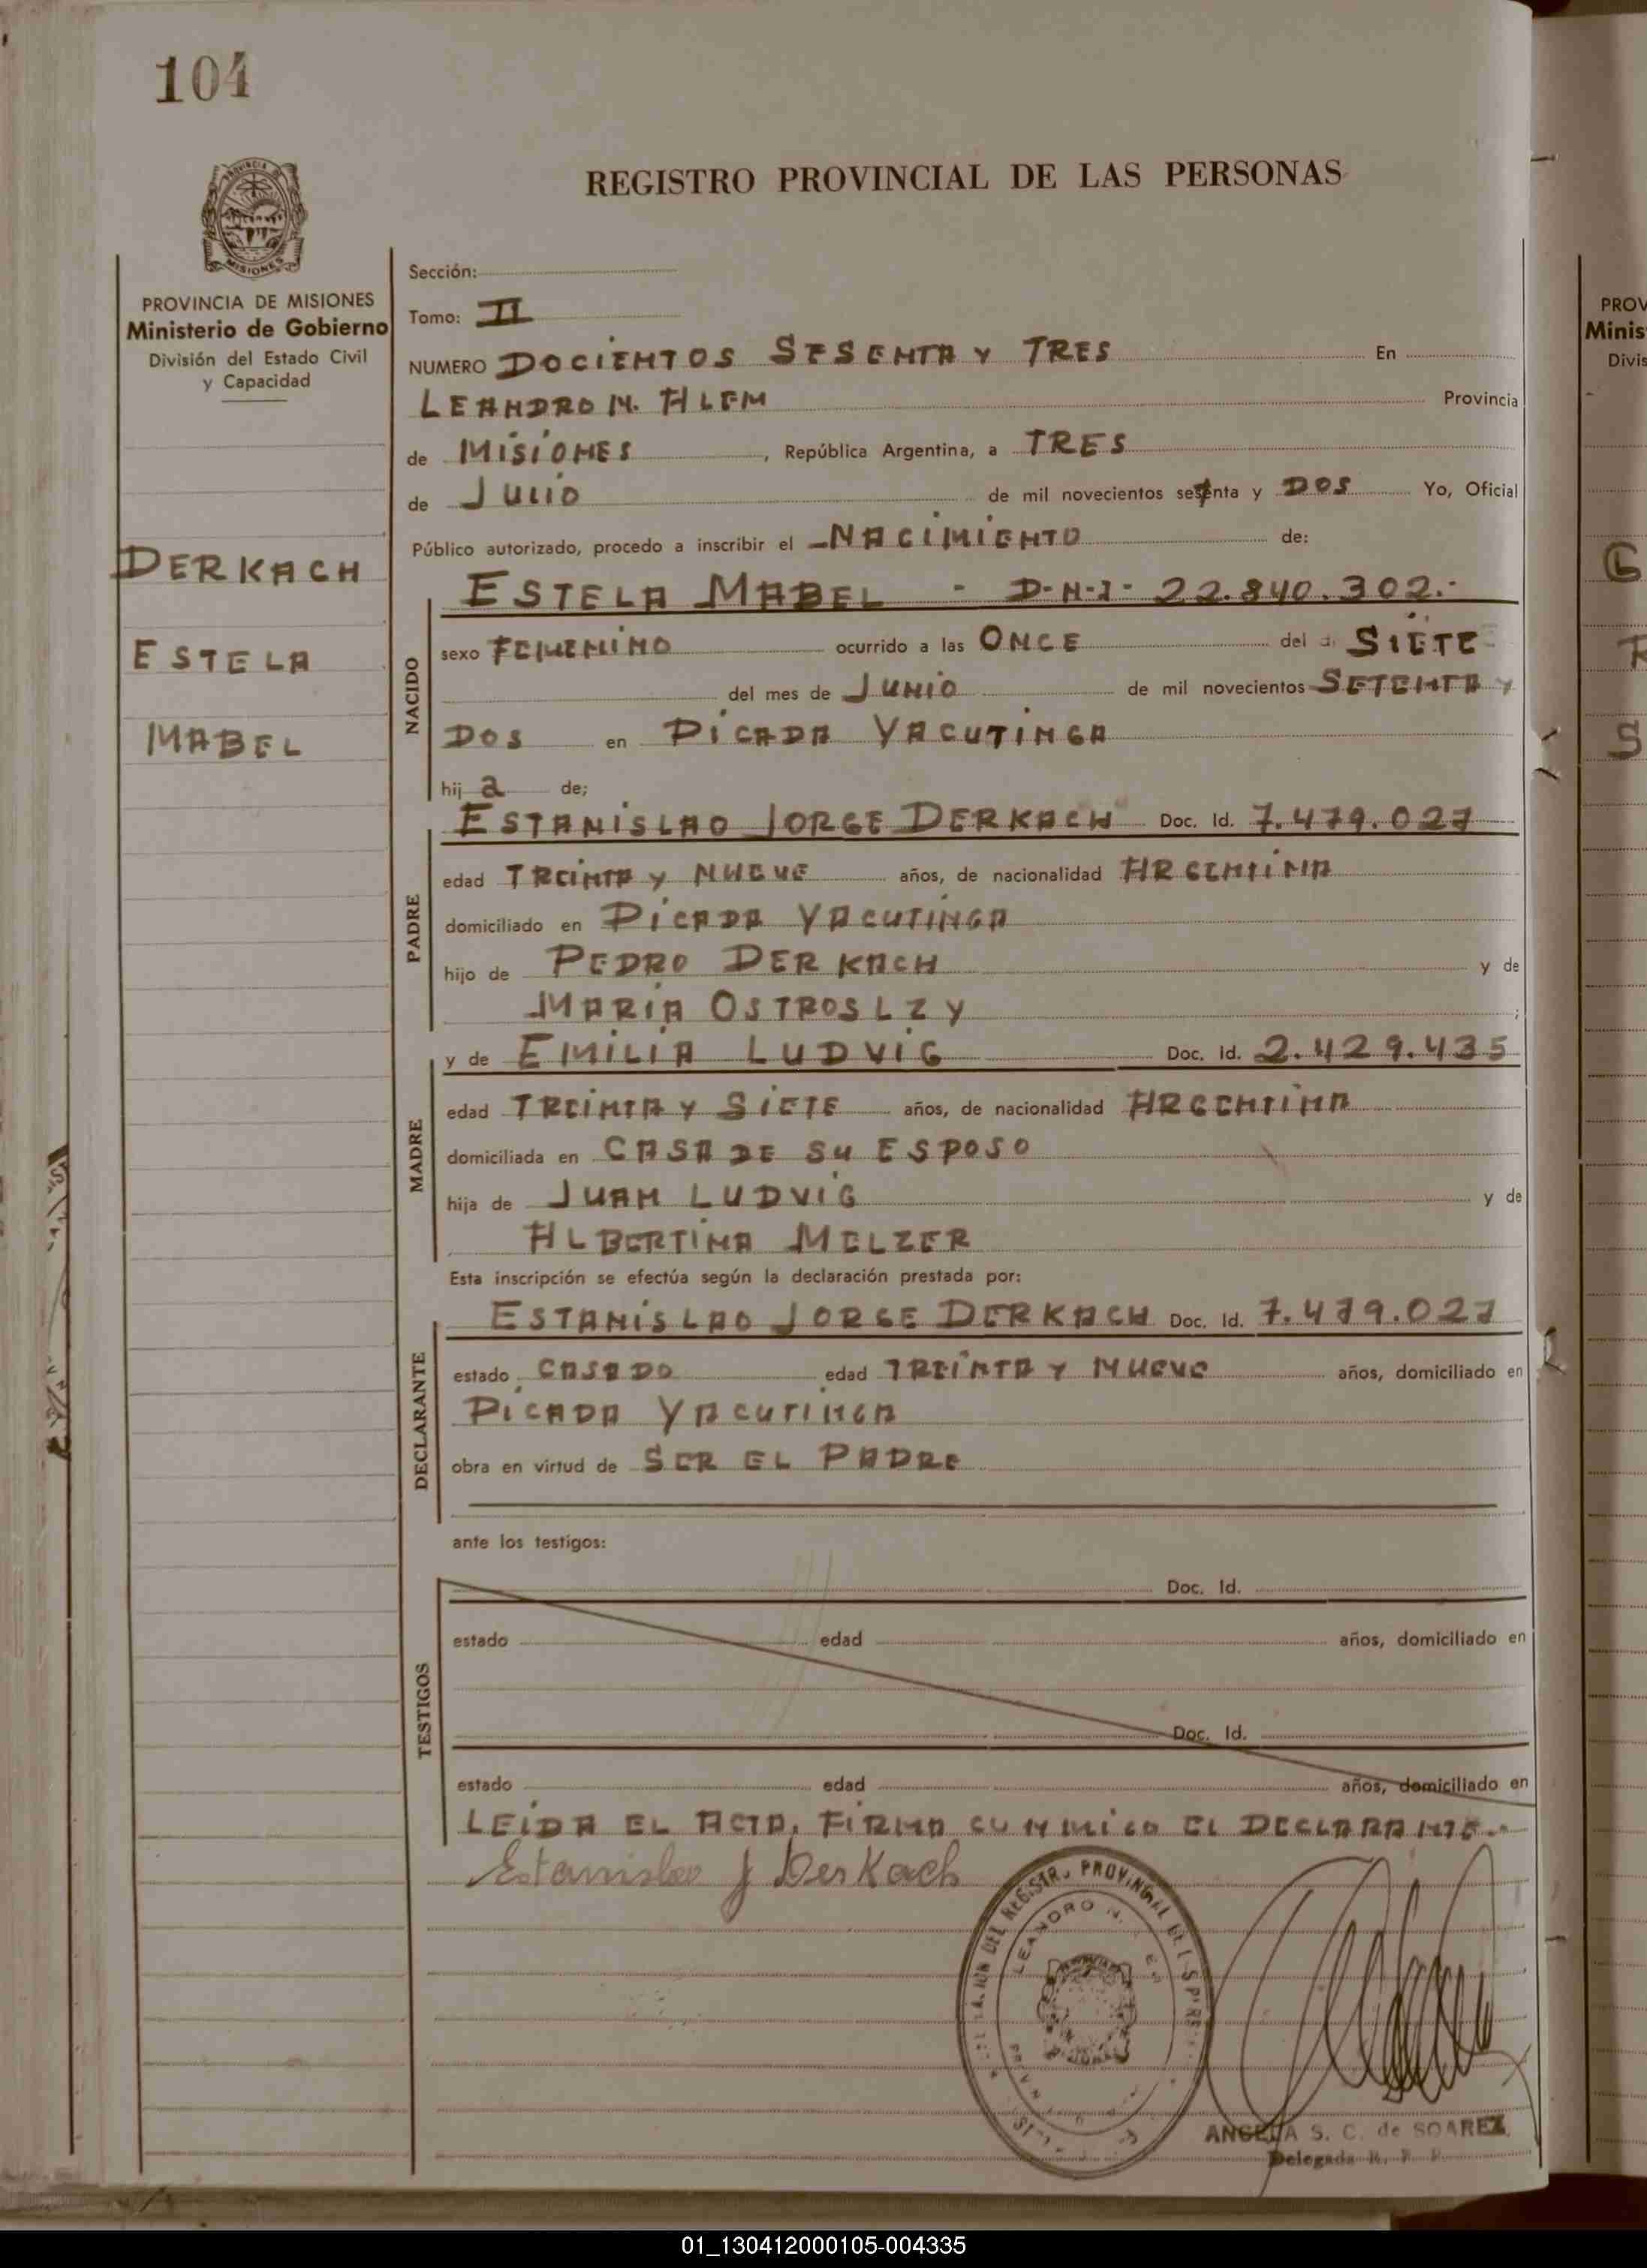 104
REGISTRO PROVINCIAL DE LAS PERSONAS
PROVINCIA DE MISIONES
Ministerio de Gobierno
División del Estado Civil
y Capacidad
DERKACH
ESTELA
MABEL
Sección:
Tomo: II
NUMERO DOCIENTOS SESENTA Y TRES En
LEANDRO N. ALEM Provincia
de MISIONES, República Argentina, a TRES
de JULIO de mil novecientos setenta y DOS Yo, Oficial
Público autorizado, procedo a inscribir el NACIMIENTO de:
NACIDO
ESTELA MABEL - D-N-I- 22.840.302.-
sexo FEMENINO ocurrido a las ONCE del d. SIETE
del mes de JUNIO de mil novecientos SETENTA Y
DOS en PICADA YACUTINGA
hij a de;
PADRE
ESTANISLAO JORGE DERKACH Doc. Id. 7.479.027
edad TREINTA Y NUEVE años, de nacionalidad ARGENTINA
domiciliado en PICADA YACUTINGA
hijo de PEDRO DERKACH y de
MARIA OSTROSLZY ;
MADRE
y de EMILIA LUDVIG Doc. Id. 2.429.435
edad TREINTA Y SIETE años, de nacionalidad ARGENTINA
domiciliada en CASA DE SU ESPOSO
hija de JUAN LUDVIG y de
ALBERTINA MELZER
Esta inscripción se efectúa según la declaración prestada por:
DECLARANTE
ESTANISLAO JORGE DERKACH Doc. Id. 7.479.027
estado CASADO edad TREINTA Y NUEVE años, domiciliado en
PICADA YACUTINGA
obra en virtud de SER EL PADRE
ante los testigos:
TESTIGOS
Doc. Id.
estado edad años, domiciliado en
Doc. Id.
estado edad años, domiciliado en
LEIDA EL ACTA, FIRMA CUNMIGO EL DECLARANTE.-
Estanislao J Derkach
DEL REGISTR. PROVINCIAL
LEANDRO N.
ANGELA S. C. de SOAREZ
Delegada R. P. P.
PROV
Minis
Divis
01_130412000105-004335